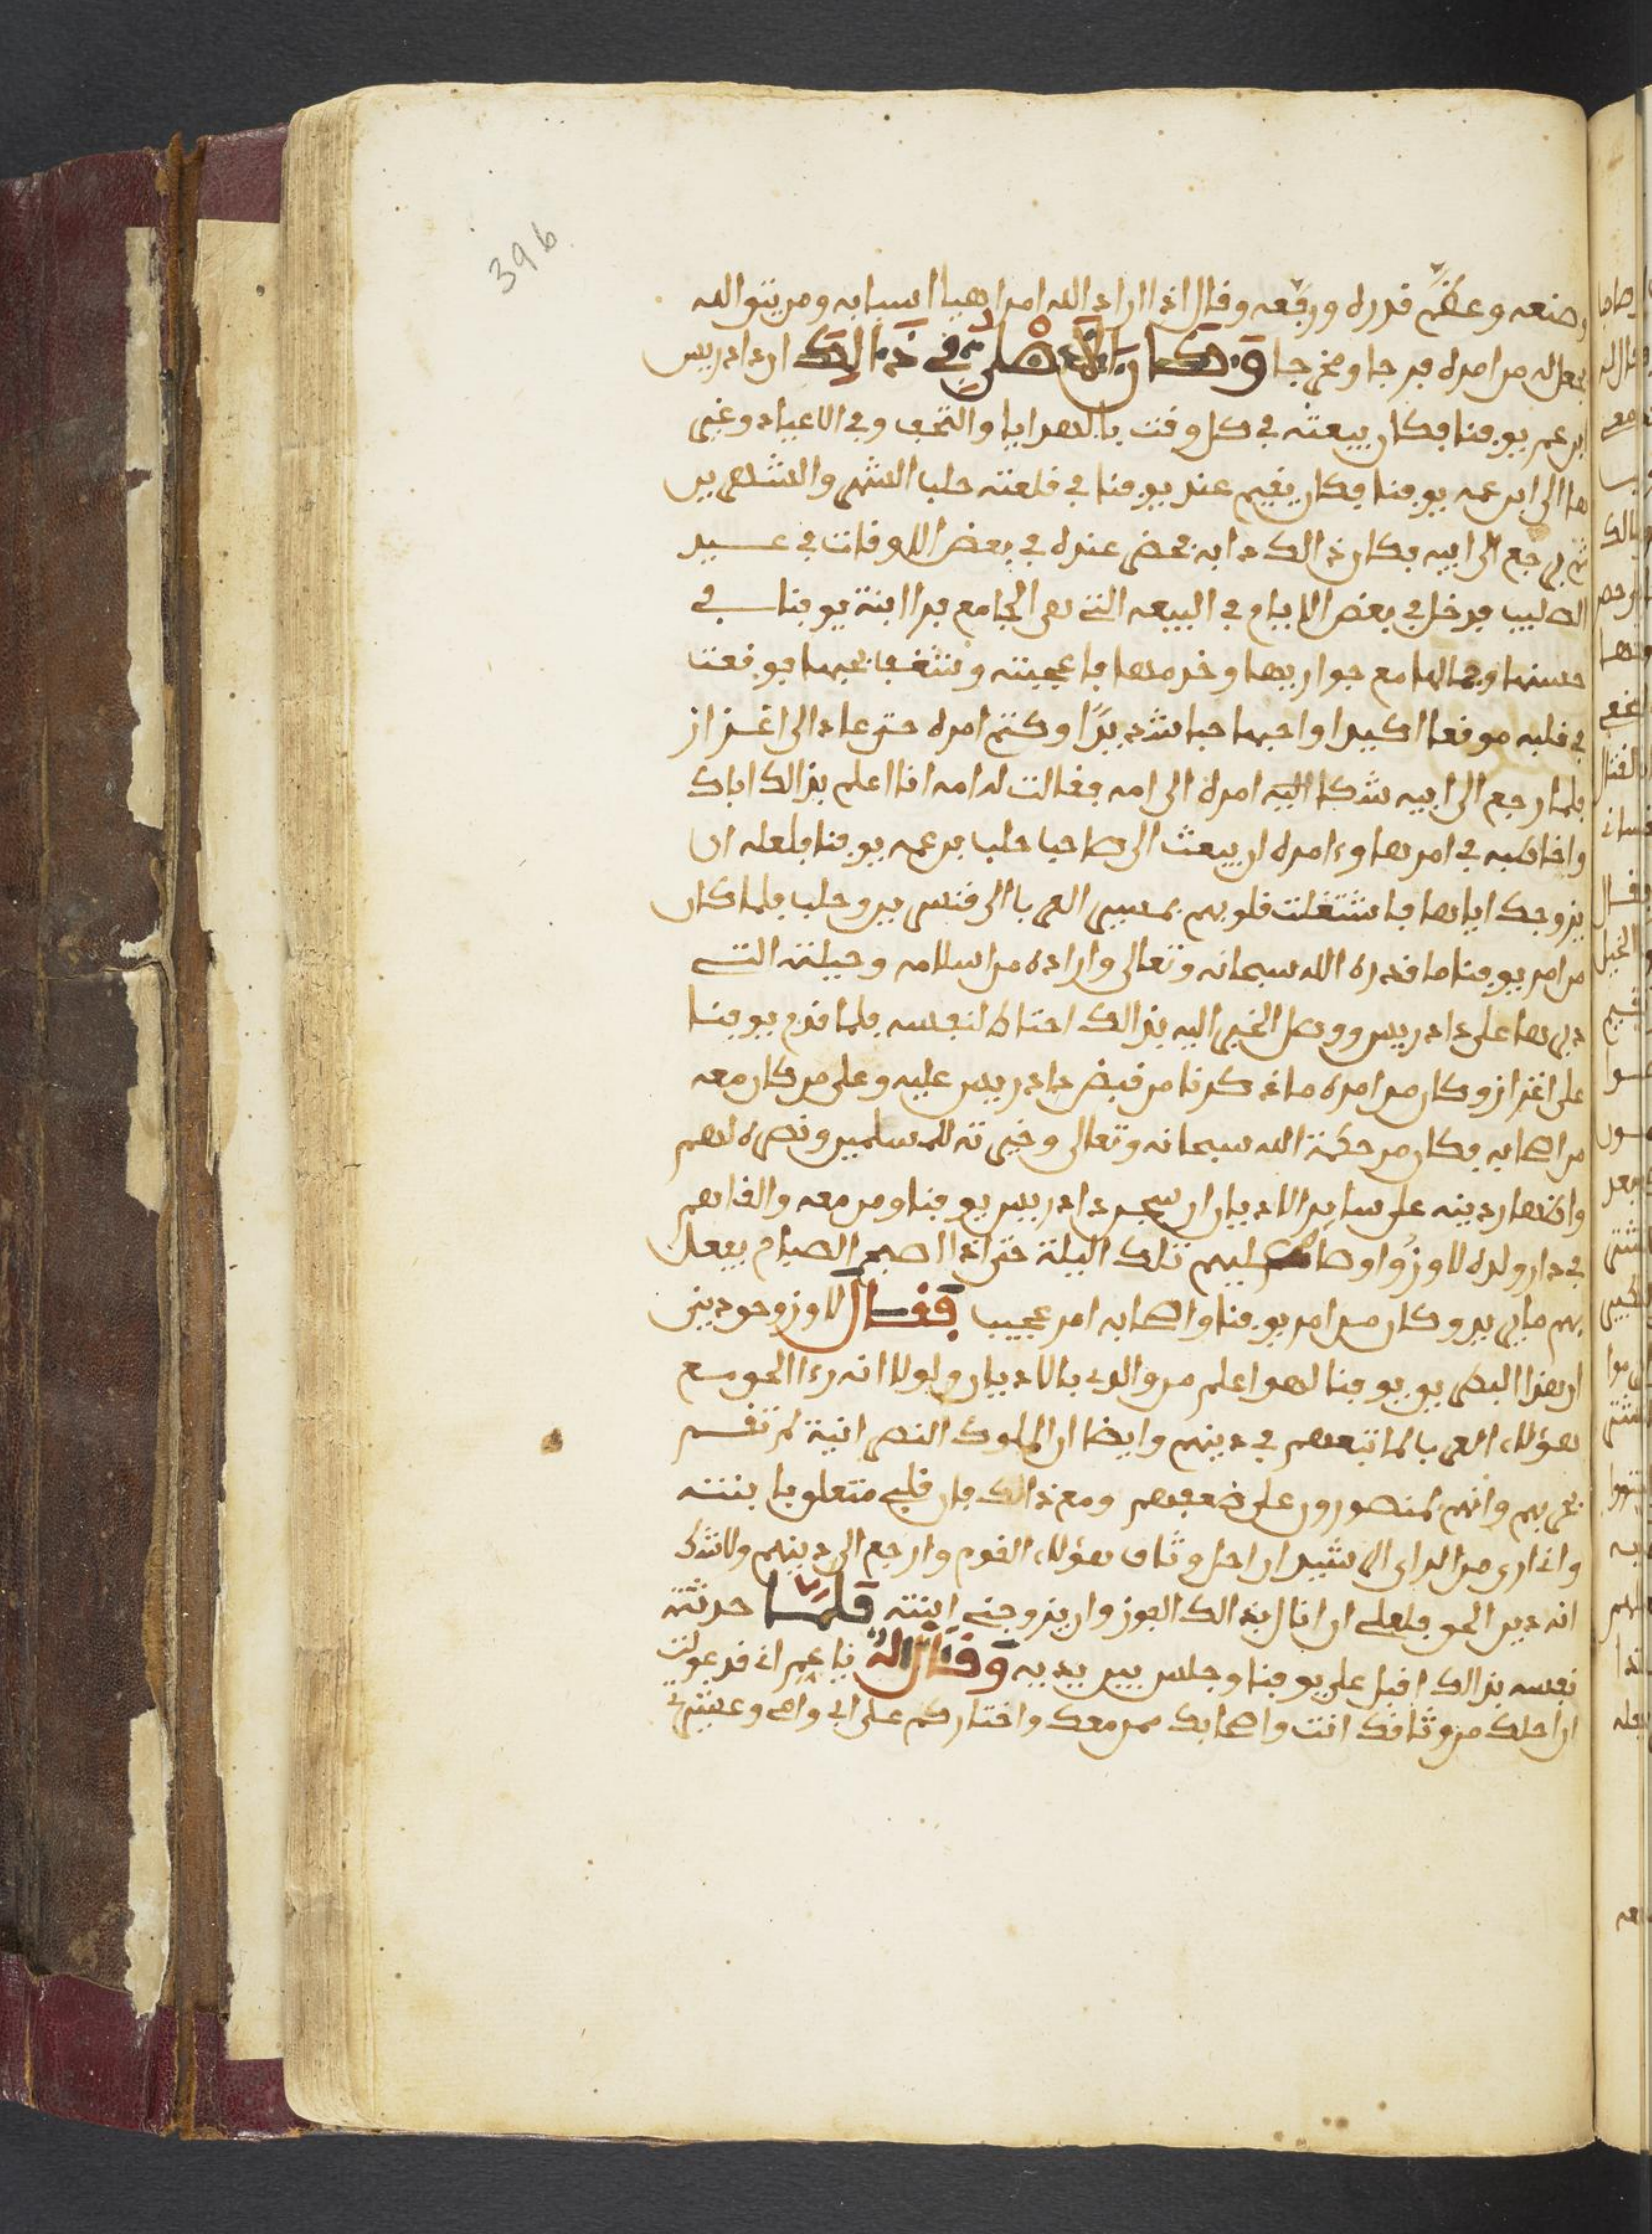 396
صنعه وعظم قدره ورفعه وقال اذا اراد الله امرا هيا اسبابه ومن يتق الله
يجعل له من امره فرجا ومخرجا وكان الاصل في ذالك ان دادريس
ابن عم يوقنا فكان يبعثه في كل وقت بالهدايا والتحف وفي الاعياد وغيى
ها الى ابن عمه يوقنا فكان يقيم عند يوقنا في قلعته حلب الشهر والشهرين
ثم يرجع الى ابيه فكان ذالك دابه فحضى عنده في بعض الاوقات في عيد
الصليب فدخل في بعض الايام في البيعه التي هي الجامع فرا ابنة يوقنا في
حسنها وجمالها مع جواريها وخدمها فاعجبته وشغف بحبها فوقعت
في قلبه موقعا كبيرا واحبها حبا شديدًا وكتم امره حتى عاد الى اعزاز
فلما رجع الى ابيه شكا اليه امره الى امه فقالت له امه انا اعلم بذالك اباك
واخاطبه في امرها وءامره ان يبعث الى صاحب حلب بن عمه يوقنا فلعله ان
يزوجك اياها فاشتغلت قلوبهم بمسيى العرب الى قنسرين وحلب فلما كان
من امر يوقنا ما قدره الله سبحانه وتعالى واراده من اسلامه وحيلته التي
دبرها على دادريس ووصل الخبر اليه بذالك احتاط لنفسه فلما قدم يوقنا
على اعزاز وكان من امره ما ذكرنا من قبض دادريس عليه وعلى من كان معه
من اصحابه فكان من حكمة الله سبحانه وتعالى وخيرته للمسلمين ونصره لهم
واظهار دينه على ساير الاديان ان سجن دادريس يوقنا ومن معه والقاهم
في دار ولده لاوزو اوصاه عليهم تلك اليلة حتى اذا اصبح الصباح يفعل
بهم ما يريد وكان من امر يوقنا واصحابه امر عجيب فقال لاوز وحق ديني
ان هذا البطريق يوقنا لهو اعلم من والدي بالاديان ولولا انه رءا الحق مع
هؤلاء العرب لما تبعهم في دينهم وايضا ان الملوك النصرانية لم تقم
بحربهم وانهم لمنصورون على ضعفهم ومع ذالك فان قلبي متعلق بابنته
وانا ارى من الراي الرشيد ان احل وثاق هؤلاء القوم وارجع الى دينهم ولا شك
انه دين الحق فلعلي ان انال بذالك الفوز وان يزوجني ابنته فلما حدثته
نفسه بذالك اقبل على يوقنا وجلس بين يديه وقال له يا عم اني قد عولت
ان احلك من وثاقك انت واصحابك ممن معك واختاركم على ابي وامي وعشيرتي